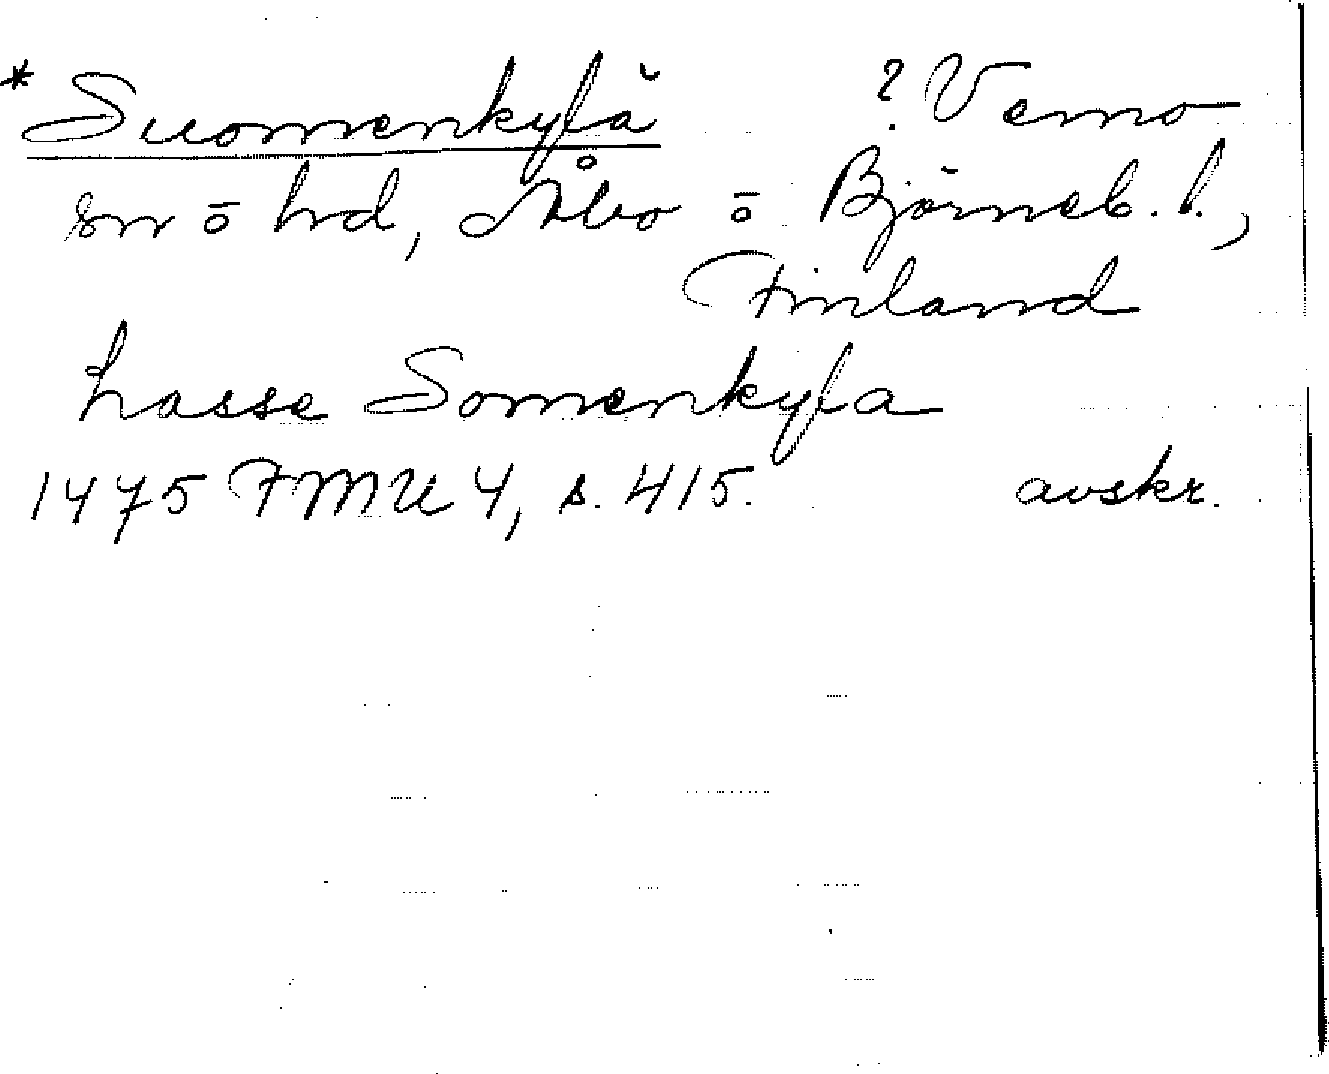 *Suomenkylä ? Vemo
sn ō hd, Åbo ō Björneb. l.,
Finland
Lasse Somenkyla
1475 FMU 4, s. 415. avskr.